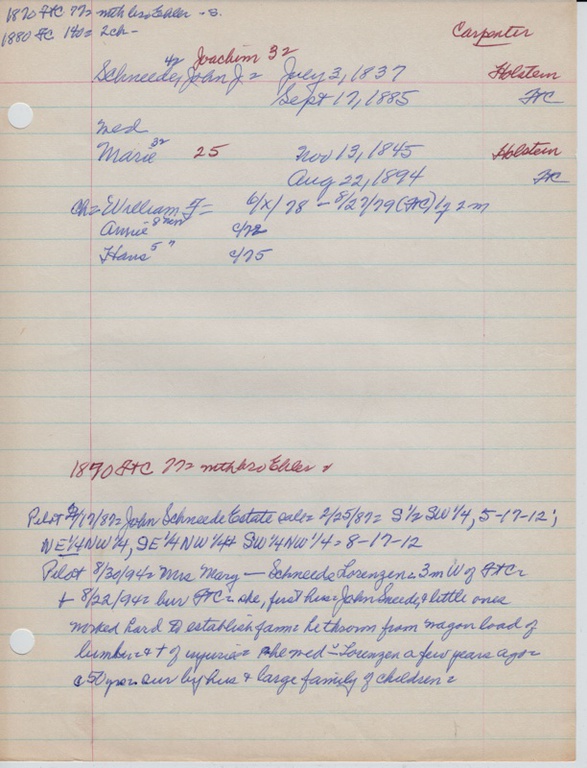 1870 FtC 77= mth bro Ehler - s.
1880 FC 140= 2ch -
Carpenter
42 Joachim 32
Schneede, John J.= July 3, 1837 Holstein
Sept 17, 1885 FtC
med
Marie 32 25 Nov 13, 1845 Holstein
Aug 22, 1894 FC
Ch= William F= 6/X/78 - 8/27/79 (FtC) 1y 2m
Annie 8 c/72
Hans 5 " c/75
1870 FtC 77= mth bro Ehler
Pilot 2/17/87= John Schneede Estate sale= 2/25/87= S 1/2 SW 1/4, 5-17-12;
NE 1/4 NW 1/4, SE 1/4 NW 1/4 + SW 1/4 NW 1/4 = 8-17-12
Pilot 8/30/94= Mrs Mary — Schneede Lorenzen= 3m W of FtC=
+ 8/22/94= bur FtC= she, first hus= John Sneede, & little ones
worked hard to establish farm= he thrown from wagon load of
lumber= & + of injuries= she med = Lorenzen a few years ago=
c 50 yrs= sur by hus & large family of children=